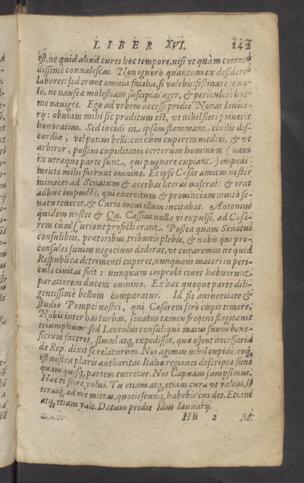 LIBER XVI. 242
est, ne quid aliud cures hoc tempore, nisi ut quàm commo
dissime conualescas. Non ignoro quantum ex desiderio
labores: sed erunt omnia facilia, si valebis: festinare te no
lo, ne nauseæ molestiam suscipias æger, & periculosè hye
me nauiges. Ego ad vrbem accessi pridie Nonas Ianua
rij: obuiam mihi sic proditum est, vt nihil fieri potuerit
honoratius. Sed incidi in ipsam flammam ciuilis dis
cordiæ, vel potius belli: cui cùm cuperem mederi, & vt
arbitror, possem, cupiditates certorum hominum (nam
ex utraque parte sunt, qui pugnare cupiant) impedi
mento mihi fuerunt omnino. Et ipse Cæsar amicus noster
minaces ad Senatum & acerbas literas miserat: & erat
adhuc impudens, qui exercitum & prouinciam inuito Se
natu teneret, & Curio meus illum incitabat. Antonius
quidem noster & Qu. Cassius nulla vi expulsi, ad Cæsa
rem cum Curione profecti erant. Postea quàm Senatus
consulibus, prætoribus, tribunis plebis, & nobis qui pro
consules sumus negocium dederat, vt curaremus ne quid
Respublica detrimenti caperet, nunquam maiori in peri
culo ciuitas fuit: nunquam improbi ciues habuerunt
paratiorem ducem omnino. Ex hac quoque parte dili
gentissimè bellum comparatur. Id fit autoritate &
studio Pompei nostri, qui Cæsarem serò cœpit timere.
Nobis inter has turbas, senatus tamen frequens flagitauit
triumphum: sed Lentulus consul, quò maius suum bene
ficium faceret, simul atq, expedisset, quæ essent necessaria
de Rep. dixit se relaturum. Nos agimus nihil cupidè: eoq,
est nostra pluris authoritas. Italiæ regiones descriptæ sunt
quam quisq, partem tueretur. Nos Capuam sumpsimus.
Hæc te scire volui. Tu etiam atq, etiam cura vt valeas, li
terasq, ad me mittas, quotiescunq, habebis cui des. Etiam
atq, etiam vale. Datum pridie Idus Ianuarij.
Hh 2 M.